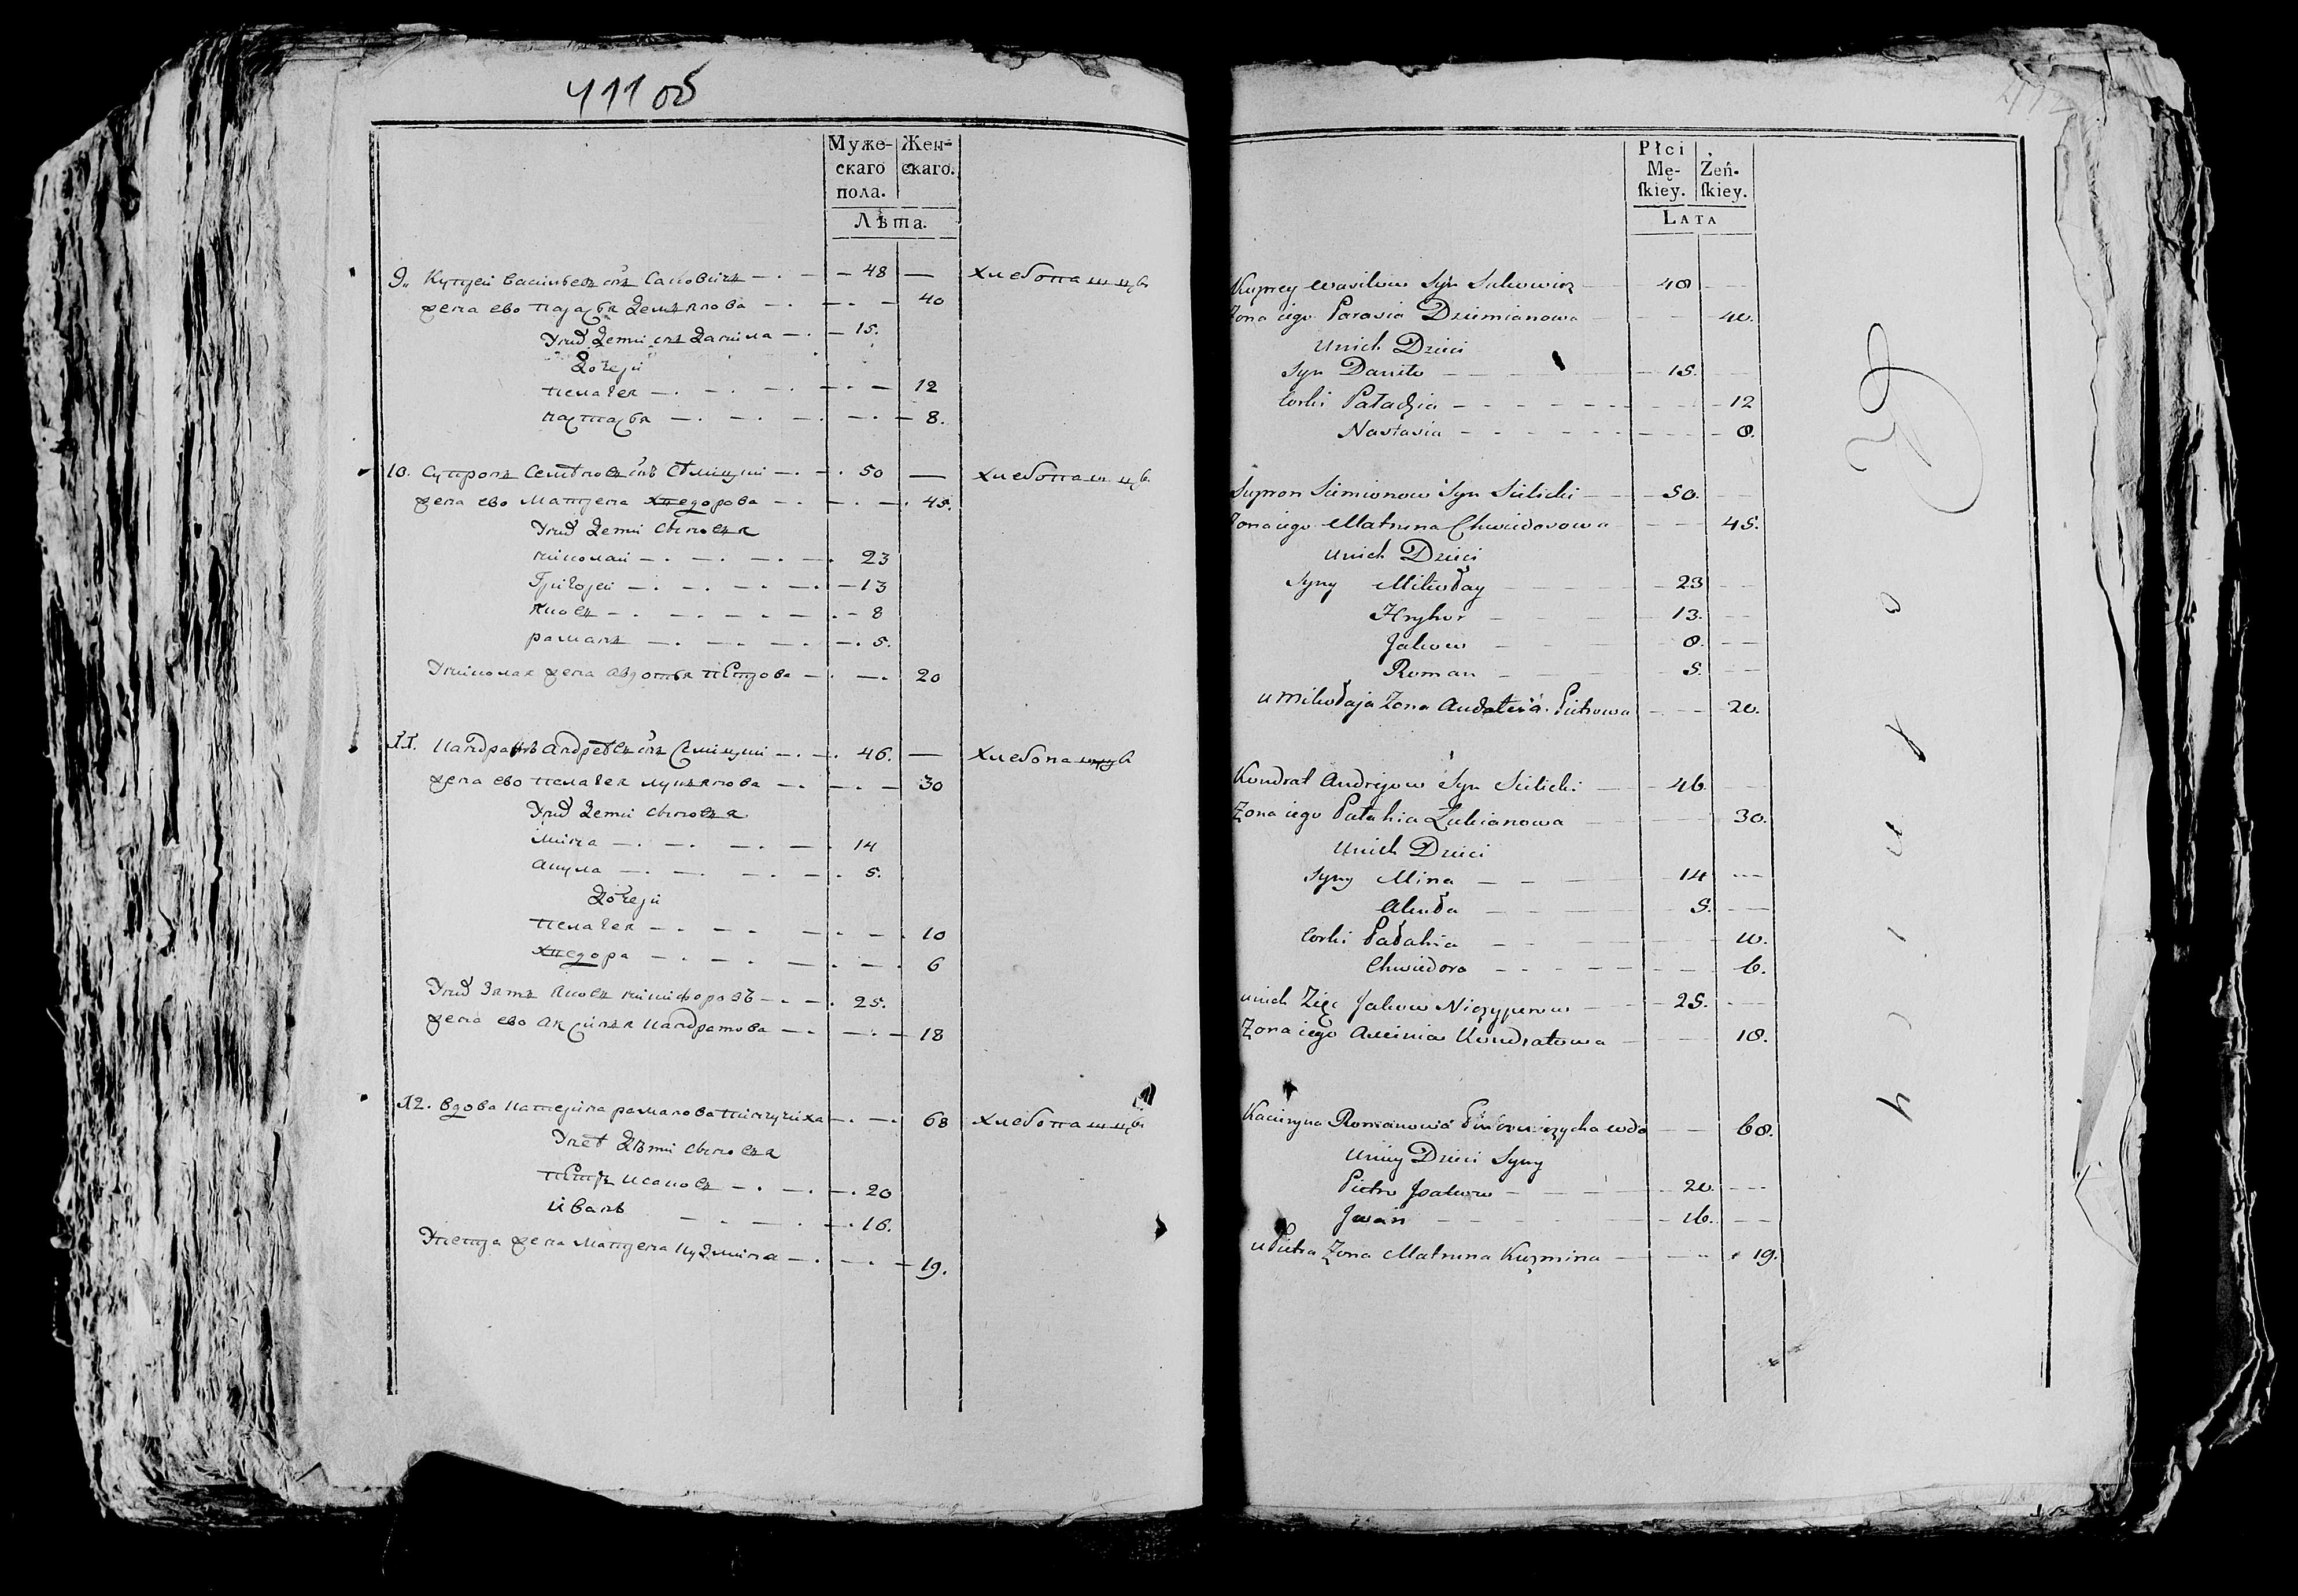 411 об
Муже-
скаго
пола.
Жен-
скаго.
Лѣта.
9. Купрей Васильевъ снъ — 48 — хлебопашцъ
жена ево Парасья Демянова — 40
У них дети снъ Данила — 15.
Дочери
Пелагея — 12
Настасья — 8.
10. Супронъ Семѣновъ снъ — 50 — хлебопашцъ
жена ево Матрена Хпедорова — 45.
У них дети сыновья
Николай — 23
Григорей — 13
Яковъ — 8
Раманъ — 5.
У Николая жена Авдотья Петрова — 20
11. Кандратъ Андреевъ снъ — 46. — хлебопашцъ
жена ево Пелагея Лукянова — 30
У них дети сыновья
Мина — 14
Акула — 5.
Дочери
Пелагея — 10
Хпедора — 6
У них зять Яковъ Никифоровъ — 25.
жена ево Аксинья Кандратова — 18
12. Вдова Катерина Раманова — 68 хлебопашцъ
У нее дѣти сыновья
Петръ Исаковъ — 20
Иванъ — 16.
У Петра жена Матрена Кузмина — 19.
Płci
Mę-
ſkiey.
Żeń-
ſkiey.
Lata
Kuprey Wasilow Syn — 48
Zona iego Parasia Dziemianowa — 40.
U nich Dzieci
Syn Daniło — 15.
Corki Pałachia — 12
Nastasia — 8.
Supron Siemionow Syn Sielicki — 50.
Zona iego Matruna Chwiedorowa — 45.
U nich Dzieci
Syny Mikołay — 23
Hryhor — 13.
Jakow — 8.
Roman — 5.
u Mikołaja Zona Audotia Pietrowa — 20.
Kondrat Andrejow Syn Sielicki — 46.
Zona iego Pałahia Łukianowa — 30.
U nich Dzieci
Syny Mina — 14
Akuła — 5.
Corki Pałahia — 10.
Chwiedora — 6.
u nich Zięć Jakow Niczyporow — 25.
Zona iego Axinia Kondratowa — 18.
Kacieryna Romanowa wdo — 68.
U niey Dzieci Syny
Pietr Jsakow — 20.
Jwan — 16.
u Pietra Zona Matruna Kuzmina — 19.